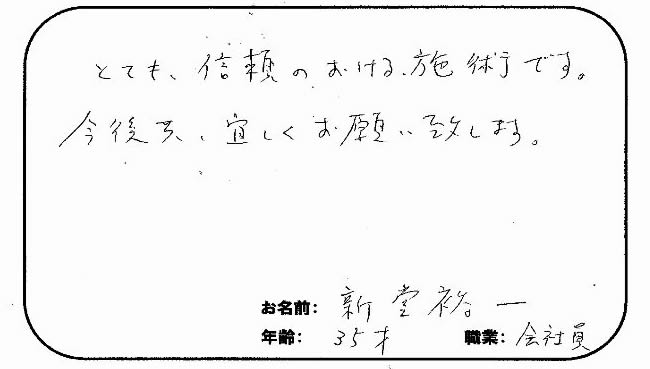 とても、信頼のおける、施術です。
今後共、宜しくお願い致します。
お名前: 新堂裕一
年齢: 35才 職業: 会社員